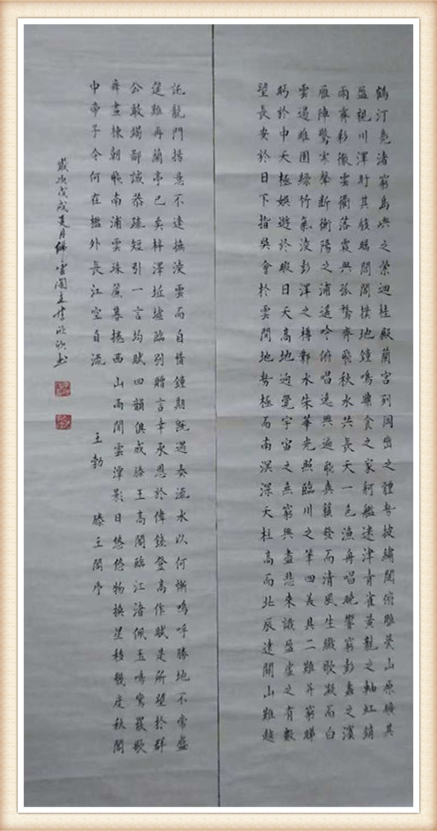 鶴汀凫渚窮島嶼之縈迴桂殿蘭宮列岡巒之體勢披繡闥俯雕甍山原曠其
盈視川澤盱其駭矚閭閻撲地鐘鳴鼎食之家舸艦迷津青雀黃龍之舳虹銷
雨霽彩徹雲衢落霞與孤鶩齊飛秋水共長天一色漁舟唱晚響窮彭蠡之濱
雁陣驚寒聲斷衡陽之浦遥吟俯唱逸興遄飛爽籟發而清風生纖歌凝而白
雲遏睢園綠竹氣凌彭澤之樽鄴水朱華光照臨川之筆四美具二難并窮睇
眄於中天極娛遊於暇日天高地迥覺宇宙之無窮興盡悲來識盈虛之有數
望長安於日下指吳會於雲間地勢極而南溟深天柱高而北辰遠關山難越
託龍門楊意不逢撫凌雲而自惜鐘期既遇奏流水以何慚嗚呼勝地不常盛
筵難再蘭亭已矣梓澤坵墟臨別贈言幸承恩於偉餞登高作賦是所望於群
公敢竭鄙誠恭疏短引一言均賦四韻俱成滕王高閣臨江渚佩玉鳴鸞罷歌
舞畫棟朝飛南浦雲珠簾暮捲西山雨閒雲潭影日悠悠物換星移幾度秋閣
中帝子今何在檻外長江空自流 王勃 滕王閣序
歲次戊戌夏月佛雲閣主李書